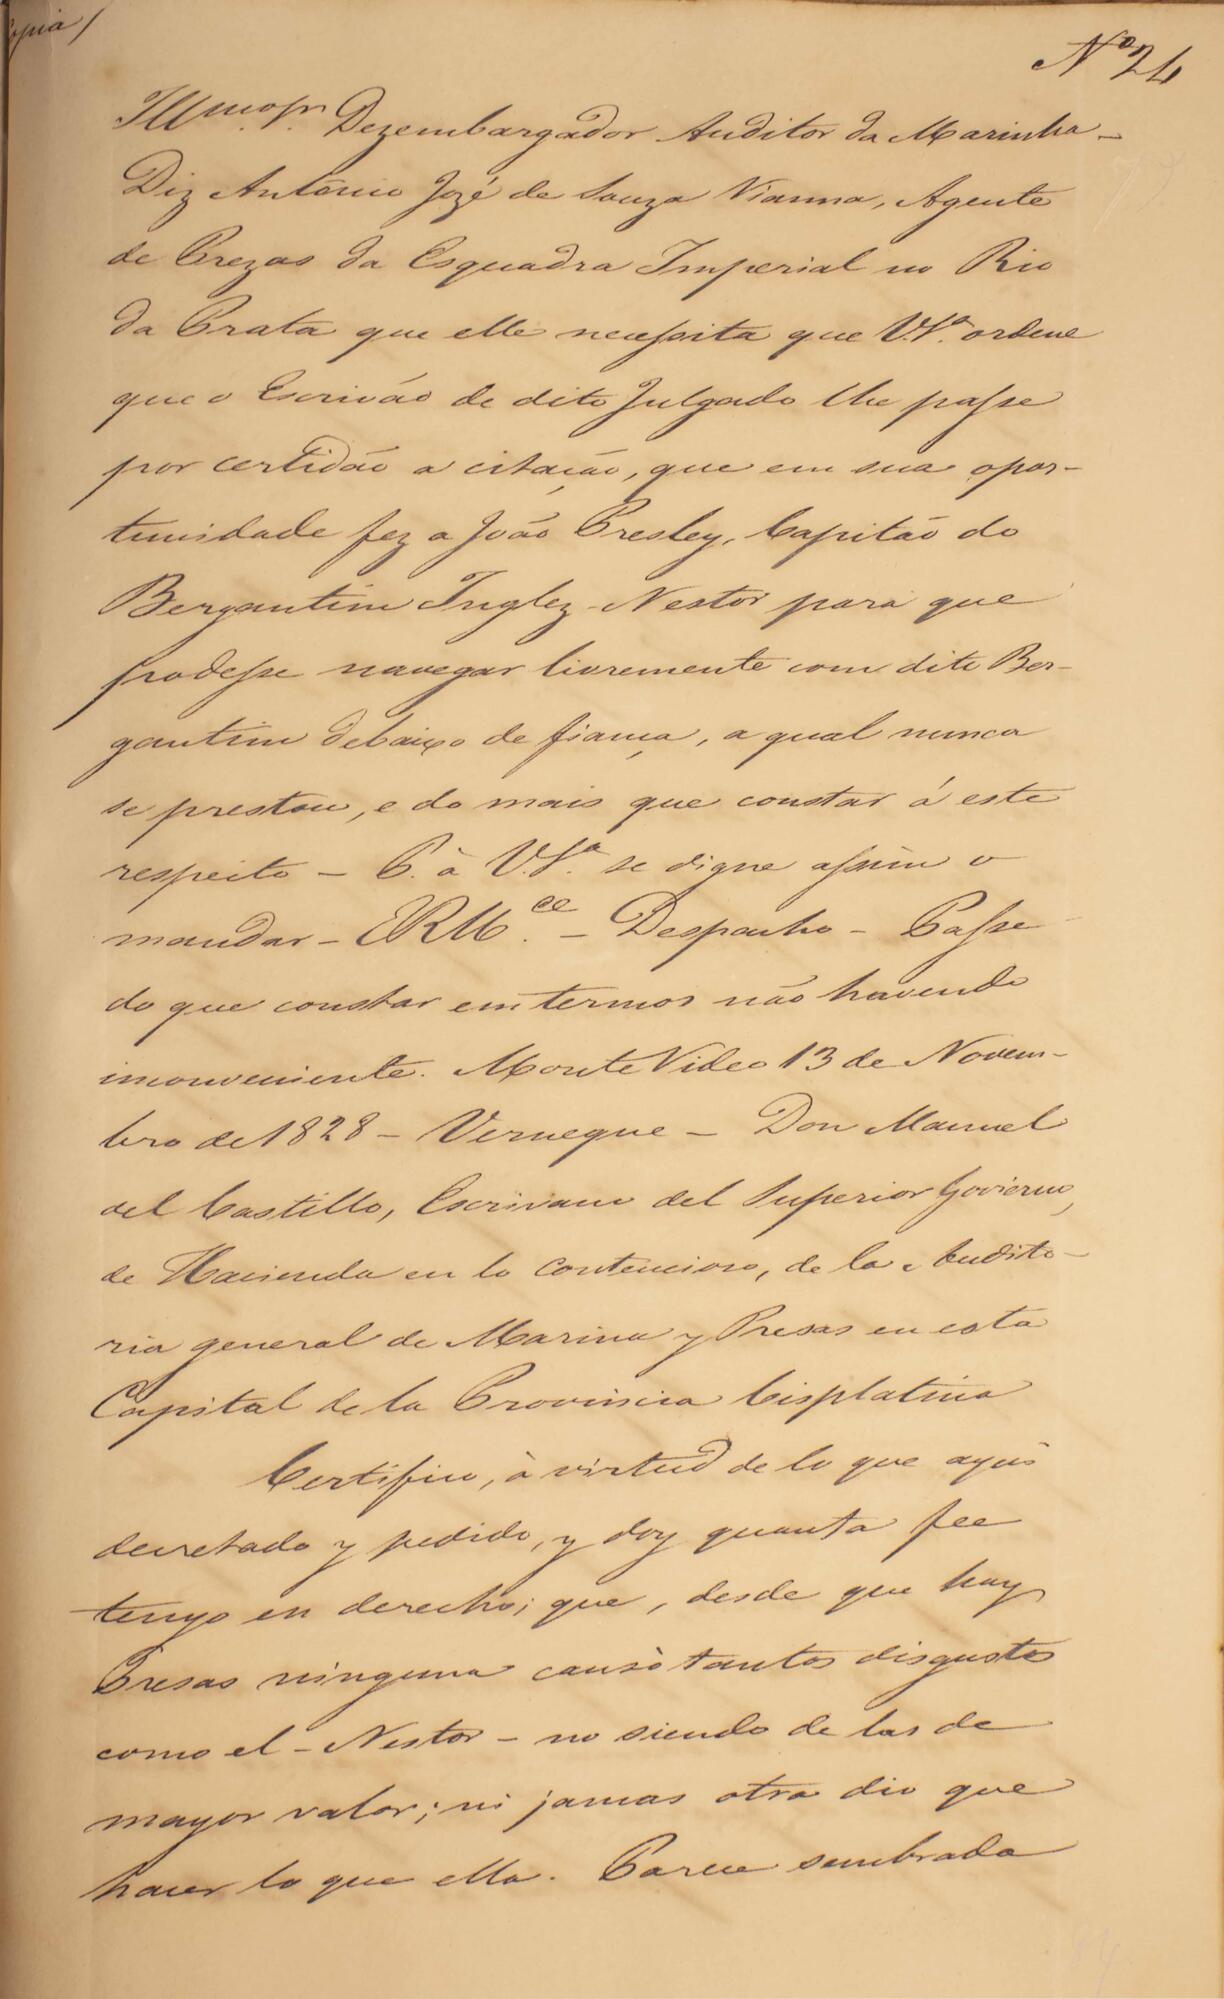 Copia /
Nº 24
Illmo Sr. Dezembargador Auditor da Marinha –
Diz António Jozé de Souza Vianna, Agente
de Prezas da Esquadra Imperial no Rio
da Prata que elle necessita que V.Sª. ordene
que o Escrivão de dito Julgado lhe passe
por certidão a citação, que em sua opor-
tunidade fez a João Presley, Capitão do
Bergantim Inglez – Nestor para que
podesse navegar livremente com dito Ber-
gantim debaixo de fiança, a qual nunca
se prestou, e do mais que constar á este
respeito – P. à V.Sª. se digne assim o
mandar – ERMce. – Despacho – Passe
do que constar em termos não havendo
inconveniente. Monte Video 13 de Novem-
bro de 1828 – Vernegue – Don Manuel
del Castillo, Escrivano del Superior Govierno,
de Hacienda en lo contencioso, de la Audito-
ria general de Marina y Presas en esta
Capital de la Provincia Cisplatina
Certifico, à virtud de lo que aquí
decretado y pedido, y doy quanta fee
tengo en derecho; que, desde que hay
Presas ninguna causò tantos disgustos
como el – Nestor – no siendo de las de
mayor valor; ni jamas otra dio que
hacer lo que ella. Parece sembrada